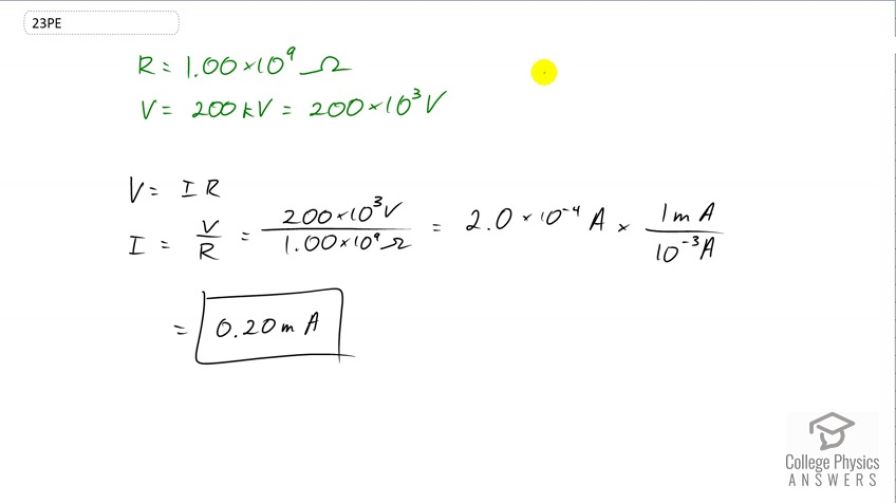 23PE
R = 1.00×10⁹ Ω
V = 200 kV = 200×10³ V
V = I R
I = V/R = 200×10³V/1.00×10⁹Ω = 2.0×10⁻⁴ A × 1mA/10⁻³A
= 0.20 mA
College Physics
ANSWERS